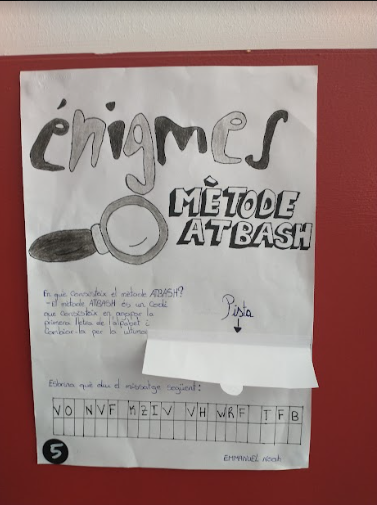 énigmes
MÈTODE
ATBASH
En què consisteix el mètode ATBASH?
-El mètode ATBASH és un codi
que consisteix en agafar la
primera lletra de l'alfabet i
canviar-la per la última
Pista
Esbrina què diu el missatge següent:
VO NVF MZIV VH WRF IFB
5
EMMANUEL Noah